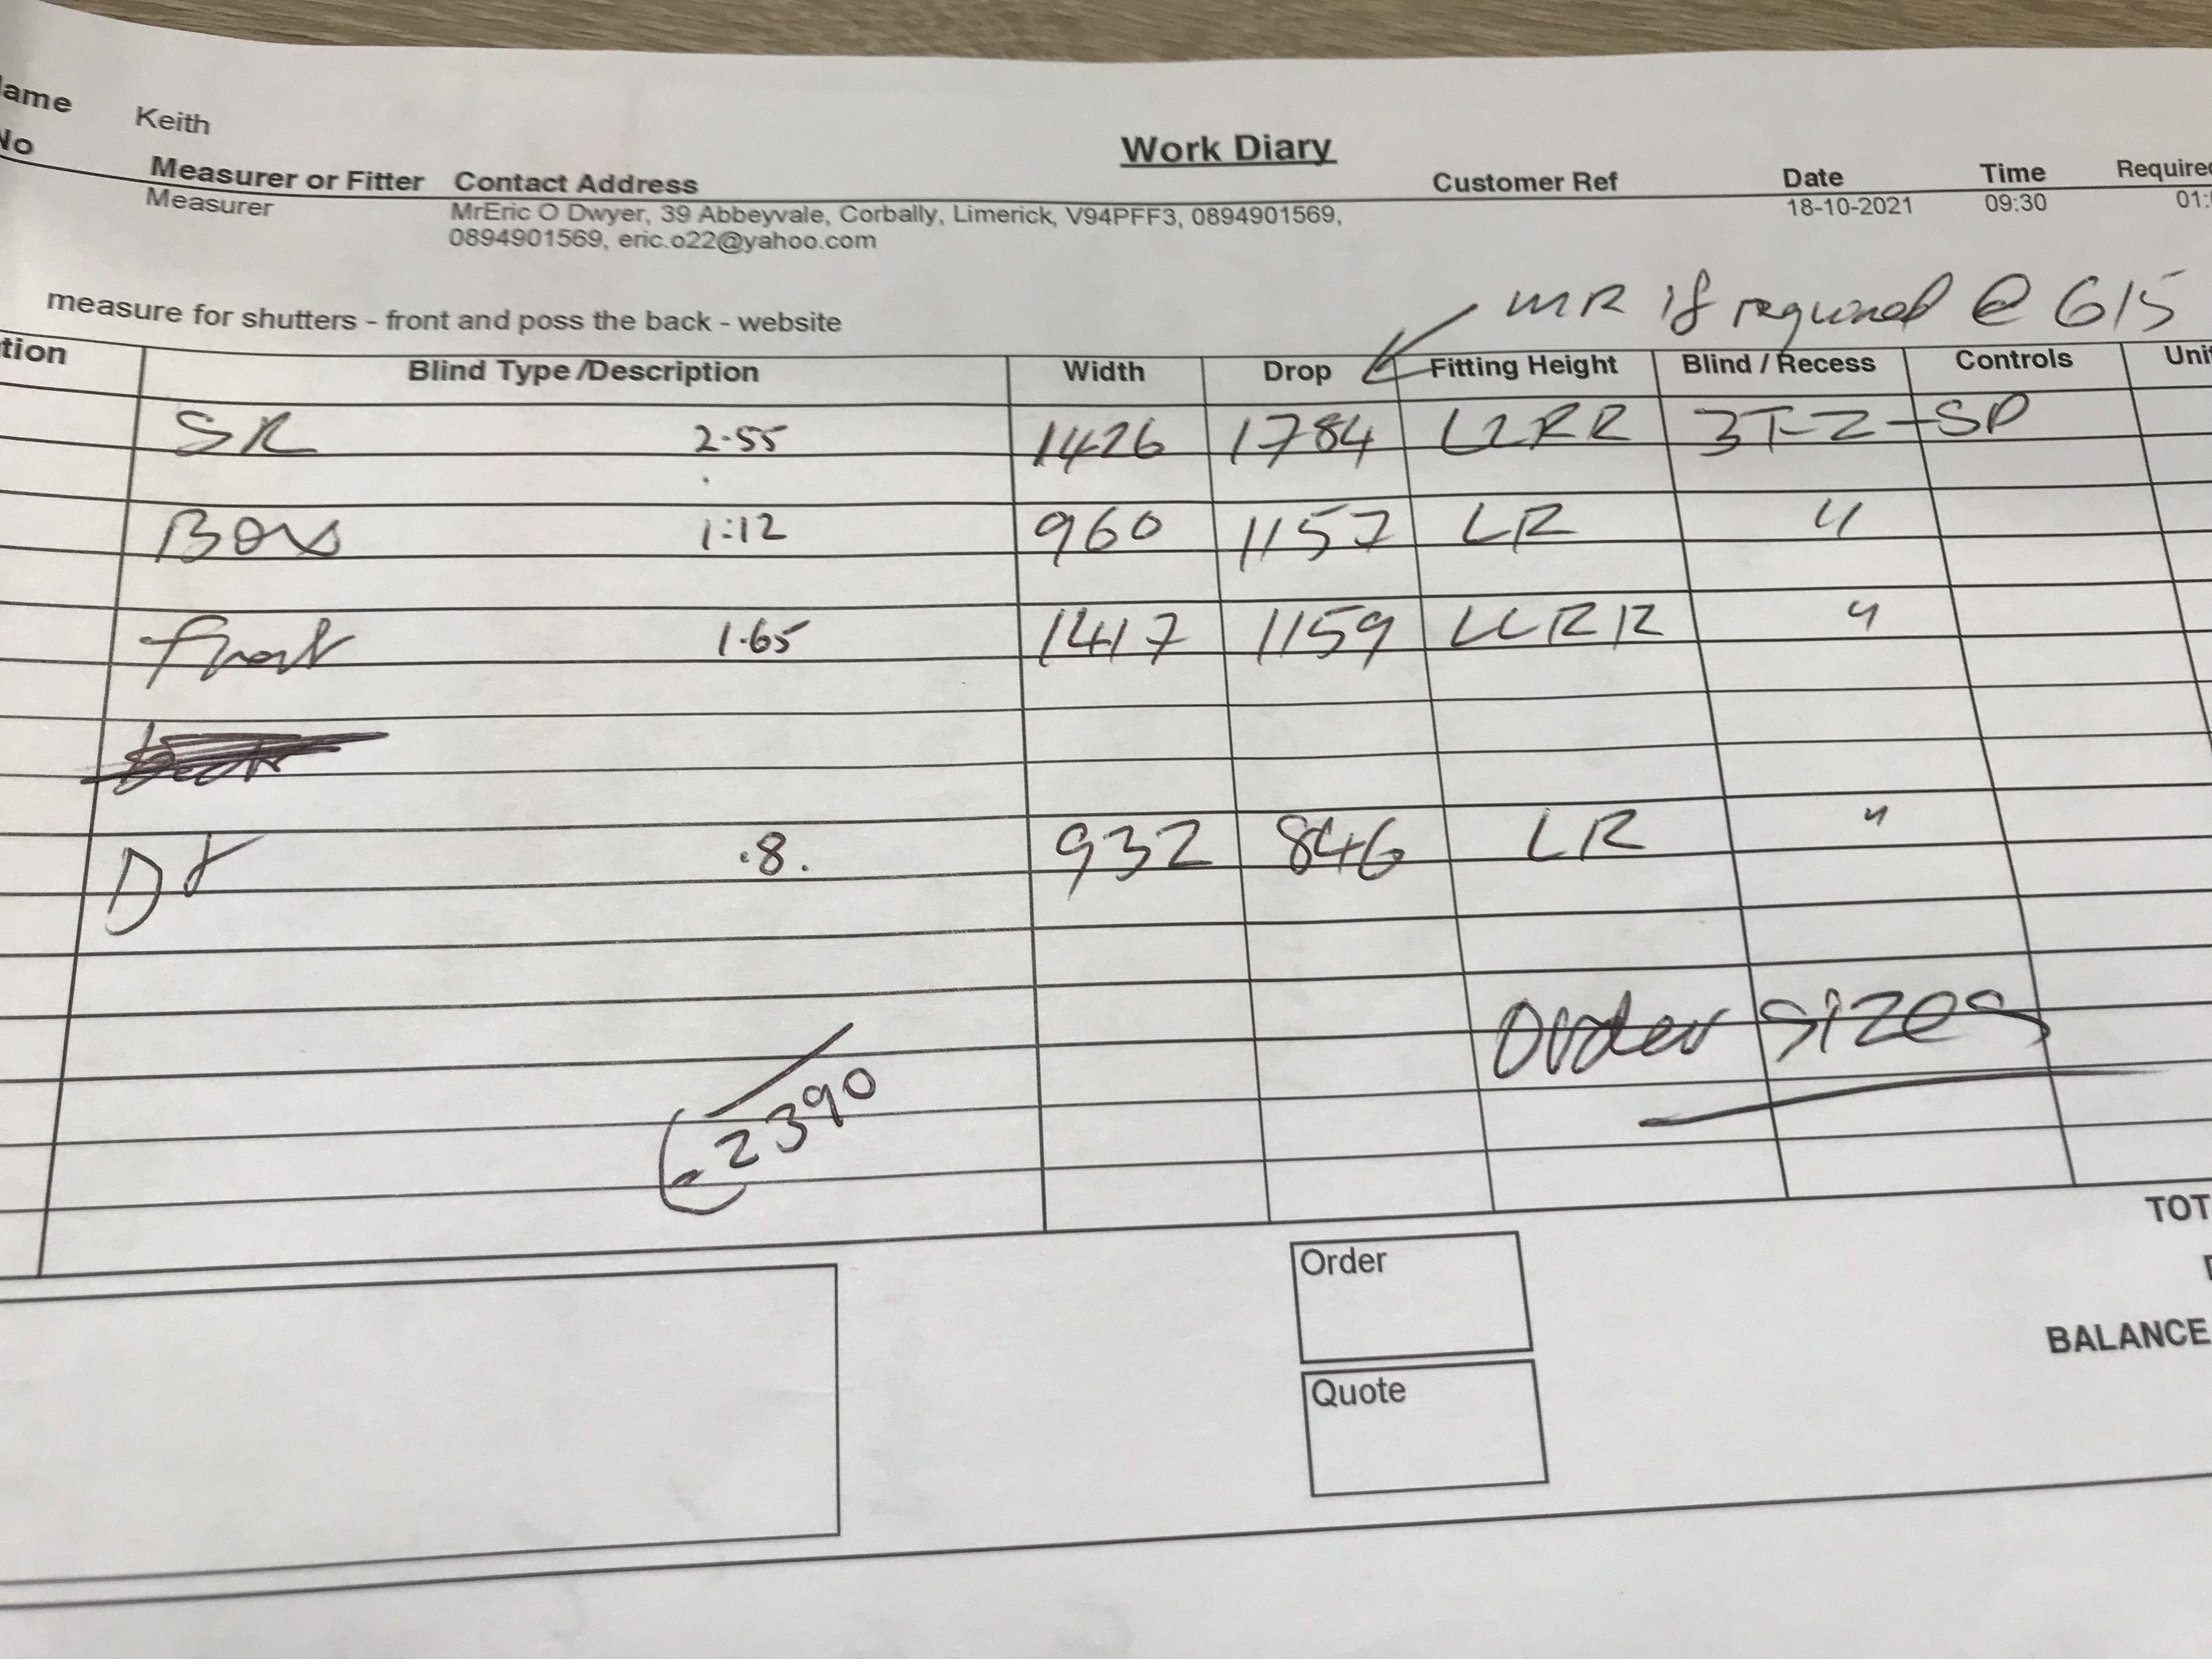 ame Keith
No
Work Diary
Measurer or Fitter Contact Address Customer Ref Date Time Required
Measurer MrEric O Dwyer, 39 Abbeyvale, Corbally, Limerick, V94PFF3, 0894901569, 18-10-2021 09:30 01:
0894901569, eric.o22@yahoo.com
MR if required @ 615
measure for shutters - front and poss the back - website
tion Blind Type /Description Width Drop Fitting Height Blind / Recess Controls Unit
SR 2.55 1426 1784 LLRR 3TZ-SP
Box 1.12 960 1157 LR "
front 1.65 1417 1159 LLRR "
D .8. 932 846 LR "
Order sizes
2390
TOT
Order
BALANCE
Quote